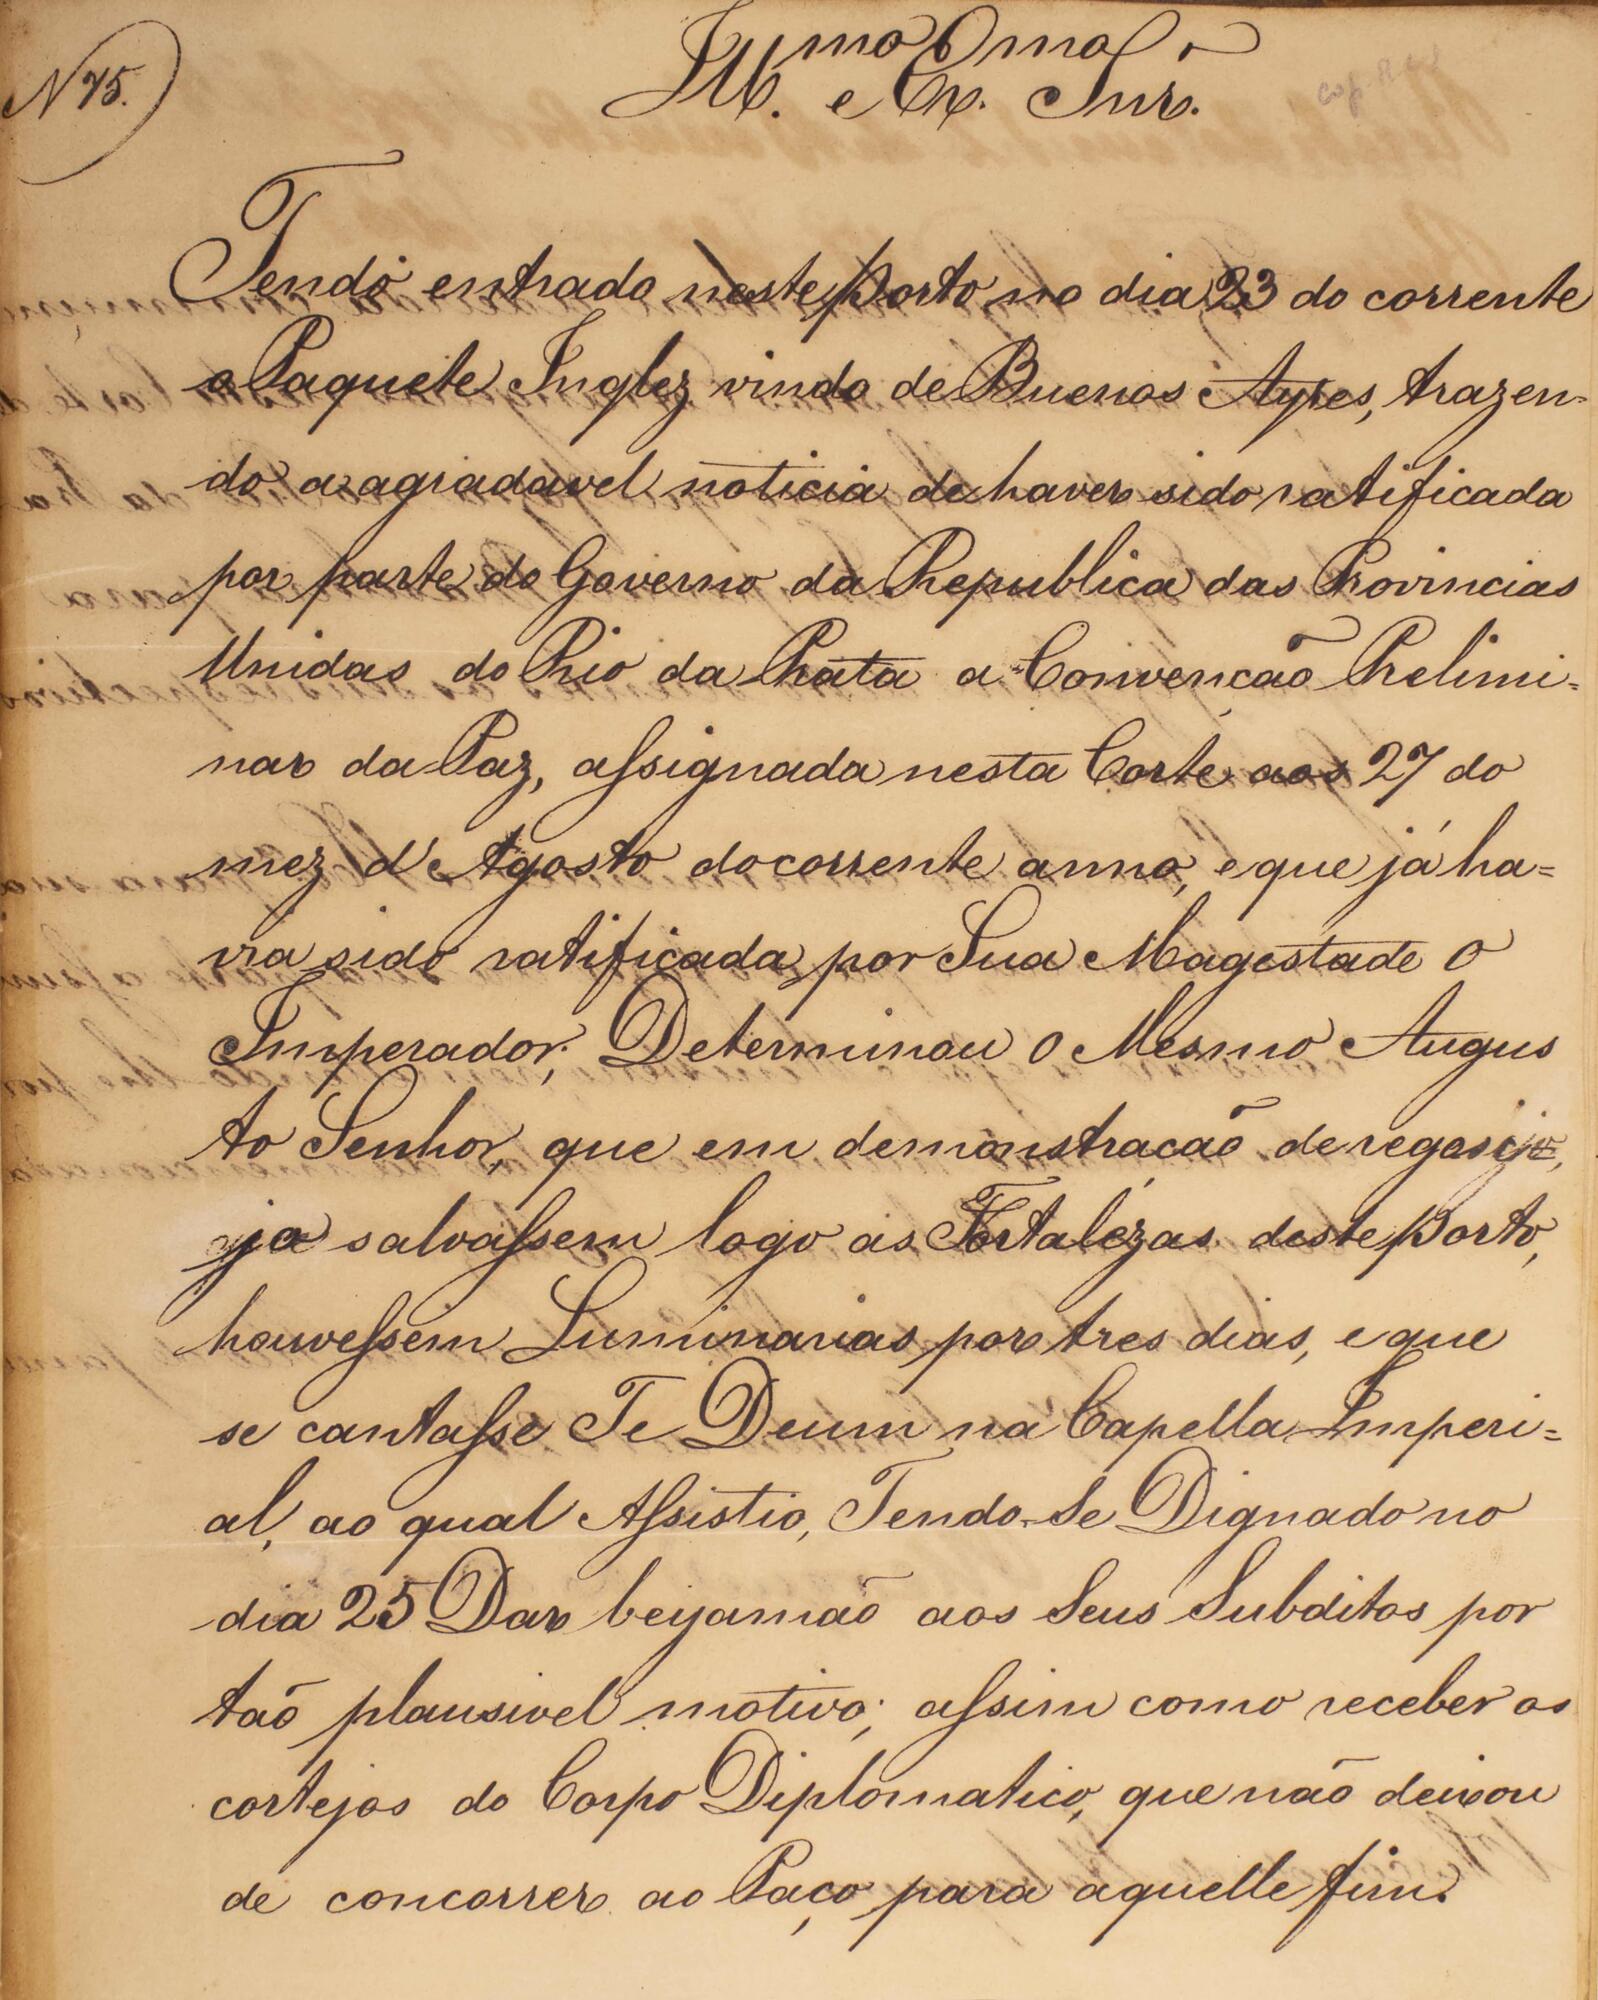 N 75.
Ill.mo e Ex.mo Snr.
Tendo entrado neste Porto no dia 23 do corrente
o Paquete Inglez vindo de Buenos Ayres, trazen-
do a agradavel noticia de haver sido ratificada
por parte do Governo da Republica das Provincias
Unidas do Rio da Prata a Convenção Prelimi=
nar da Paz, assignada nesta Corte aos 27 do
mez d'Agosto do corrente anno, e que já ha=
via sido ratificada por Sua Magestade O
Imperador; Determinou O Mesmo Augus
to Senhor, que em demonstração de regosijo,
salvassem logo as Fortalezas deste Porto,
houvessem Luminarias por tres dias, e que
se cantasse Te Deum na Capella Imperi=
al, ao qual Assistio, Tendo-Se Dignado no
dia 25 Dar beijamão aos Seus Subditos por
tão plausivel motivo; assim como receber os
cortejos do Corpo Diplomatico, que não deixou
de concorrer ao Paço para aquelle fim.